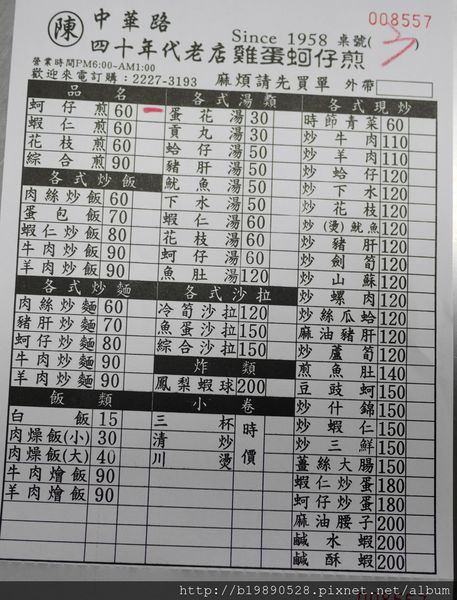 陳 中華路 008557
四十年代老店 Since 1958 雞蛋蚵仔煎 桌號( )
營業時間PM6:00~AM1:00
歡迎來電訂購：2227-3193 麻煩請先買單 外帶
品名
蚵仔煎 60
蝦仁煎 60
花枝煎 60
綜合煎 90
各式炒飯
肉絲炒飯 60
蛋包飯 70
蝦仁炒飯 80
牛肉炒飯 90
羊肉炒飯 90
各式炒麵
肉絲炒麵 60
豬肝炒麵 70
蚵仔炒麵 80
牛肉炒麵 90
羊肉炒麵 90
飯類
白飯 15
肉燥飯(小) 30
肉燥飯(大) 40
牛肉燴飯 90
羊肉燴飯 90
各式湯類
蛋花湯 30
貢丸湯 30
蛤仔湯 50
豬肝湯 50
魷魚湯 50
下水湯 50
蝦仁湯 60
花枝湯 60
蚵仔湯 60
魚肚湯 120
各式沙拉
冷筍沙拉 120
魚蛋沙拉 150
綜合沙拉 150
炸類
鳳梨蝦球 200
小卷
三杯
清炒
川燙
時價
各式現炒
時節青菜 60
炒牛肉 110
炒羊肉 110
炒蛤仔 120
炒下水 120
炒花枝 120
炒(燙)魷魚 120
炒豬肝 120
炒劍筍 120
炒山蘇 120
炒螺肉 120
炒絲瓜蛤 120
麻油豬肝 120
炒蘆筍 120
煎魚肚 140
豆豉蚵 150
炒什錦 150
炒蝦仁 150
炒三鮮 150
薑絲大腸 150
蝦仁炒蛋 180
蚵仔炒蛋 180
麻油腰子 200
鹹水蝦 200
鹹酥蝦 200
http://b19890528.pixnet.net/album